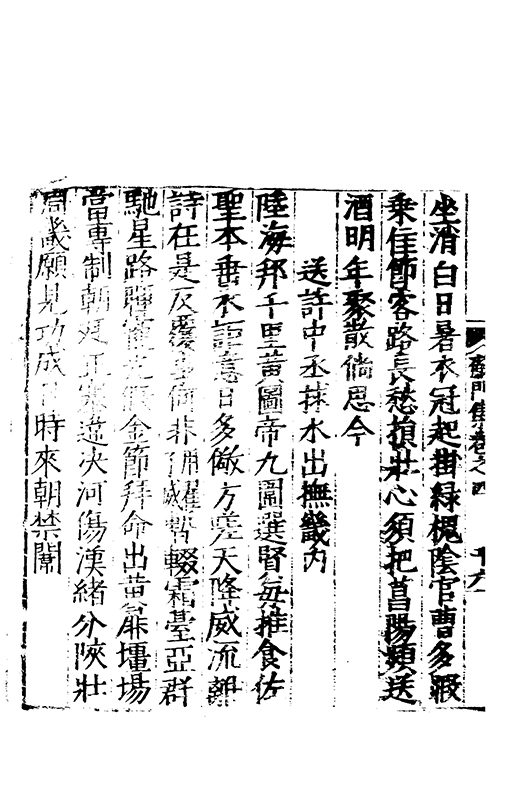 坐消白日暑衣冠起掛綠槐陰官曹多暇
乘佳節客路長愁損壯心須把菖陽頻送
酒明年聚散倘思今
送許中丞捄水出撫畿內
陸海邦千里黃圖帝九圍選賢每推食佐
聖本垂衣 意日多儆方 天降威流
詩在是反覆 非 暫輟霜臺亞群
馳星路 金節拜命出黃扉壃場
當專制朝廷正 遑決河傷漢緒分陝壯
周畿願見功成日時來朝禁闈
卷之四 十六